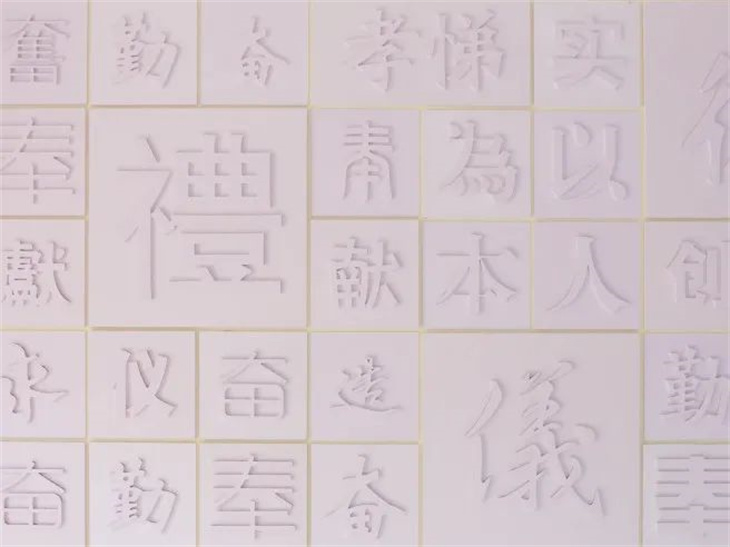 奮 勤 奋 孝悌 实
奉 禮 為 以
獻 献 本 人
仪 奋 造 儀 勤
奋 勤 奉 奋 奉